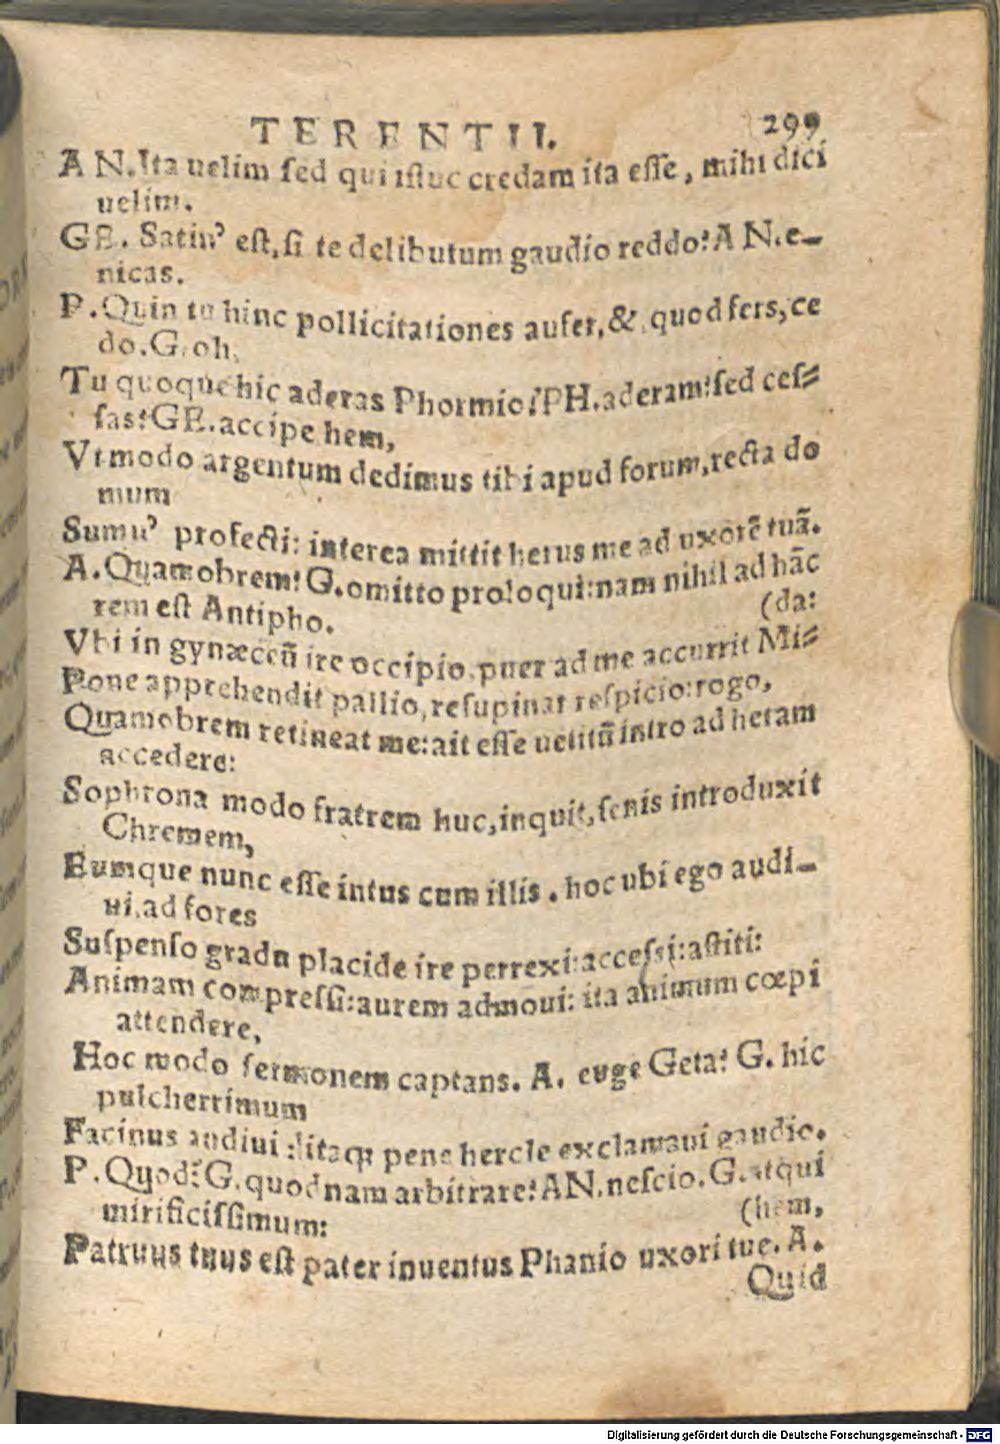 TERENTII. 299
AN. Ita uelim sed qui istuc credam ita esse, mihi dici
uelim.
GE. Satin' est, si te delibutum gaudio reddo? AN. e-
nicas.
P. Quin tu hinc pollicitationes aufer, & quod fers, ce
do. G. oh,
Tu quoque hic aderas Phormio? PH. aderam: sed ces-
sas? GE. accipe hem,
Vt modo argentum dedimus tibi apud forum, recta do
mum
Sumu' profecti: interea mittit herus me ad uxorē tuā.
A. Quamobrem? G. omitto proloqui: nam nihil ad hāc
rem est Antipho. (da:
Vbi in gynæceū ire occipio, puer ad me accurrit Mi-
Pone apprehendit pallio, resupinat respicio: rogo,
Quamobrem retineat me: ait esse uetitū intro ad heram
accedere:
Sophrona modo fratrem huc, inquit, senis introduxit
Chremem,
Eumque nunc esse intus cum illis. hoc ubi ego audi-
ui, ad fores
Suspenso gradu placide ire perrexi: accessi: astiti:
Animam compressi: aurem admoui: ita animum cœpi
attendere,
Hoc modo sermonem captans. A. euge Geta? G. hic
pulcherrimum
Facinus audiui: itaq; pene hercle exclamaui gaudio.
P. Quod? G. quodnam arbitrare? AN. nescio. G. atqui
mirificissimum: (hem,
Patruus tuus est pater inuentus Phanio uxori tue. A.
Quid
Digitalisierung gefördert durch die Deutsche Forschungsgemeinschaft - DFG